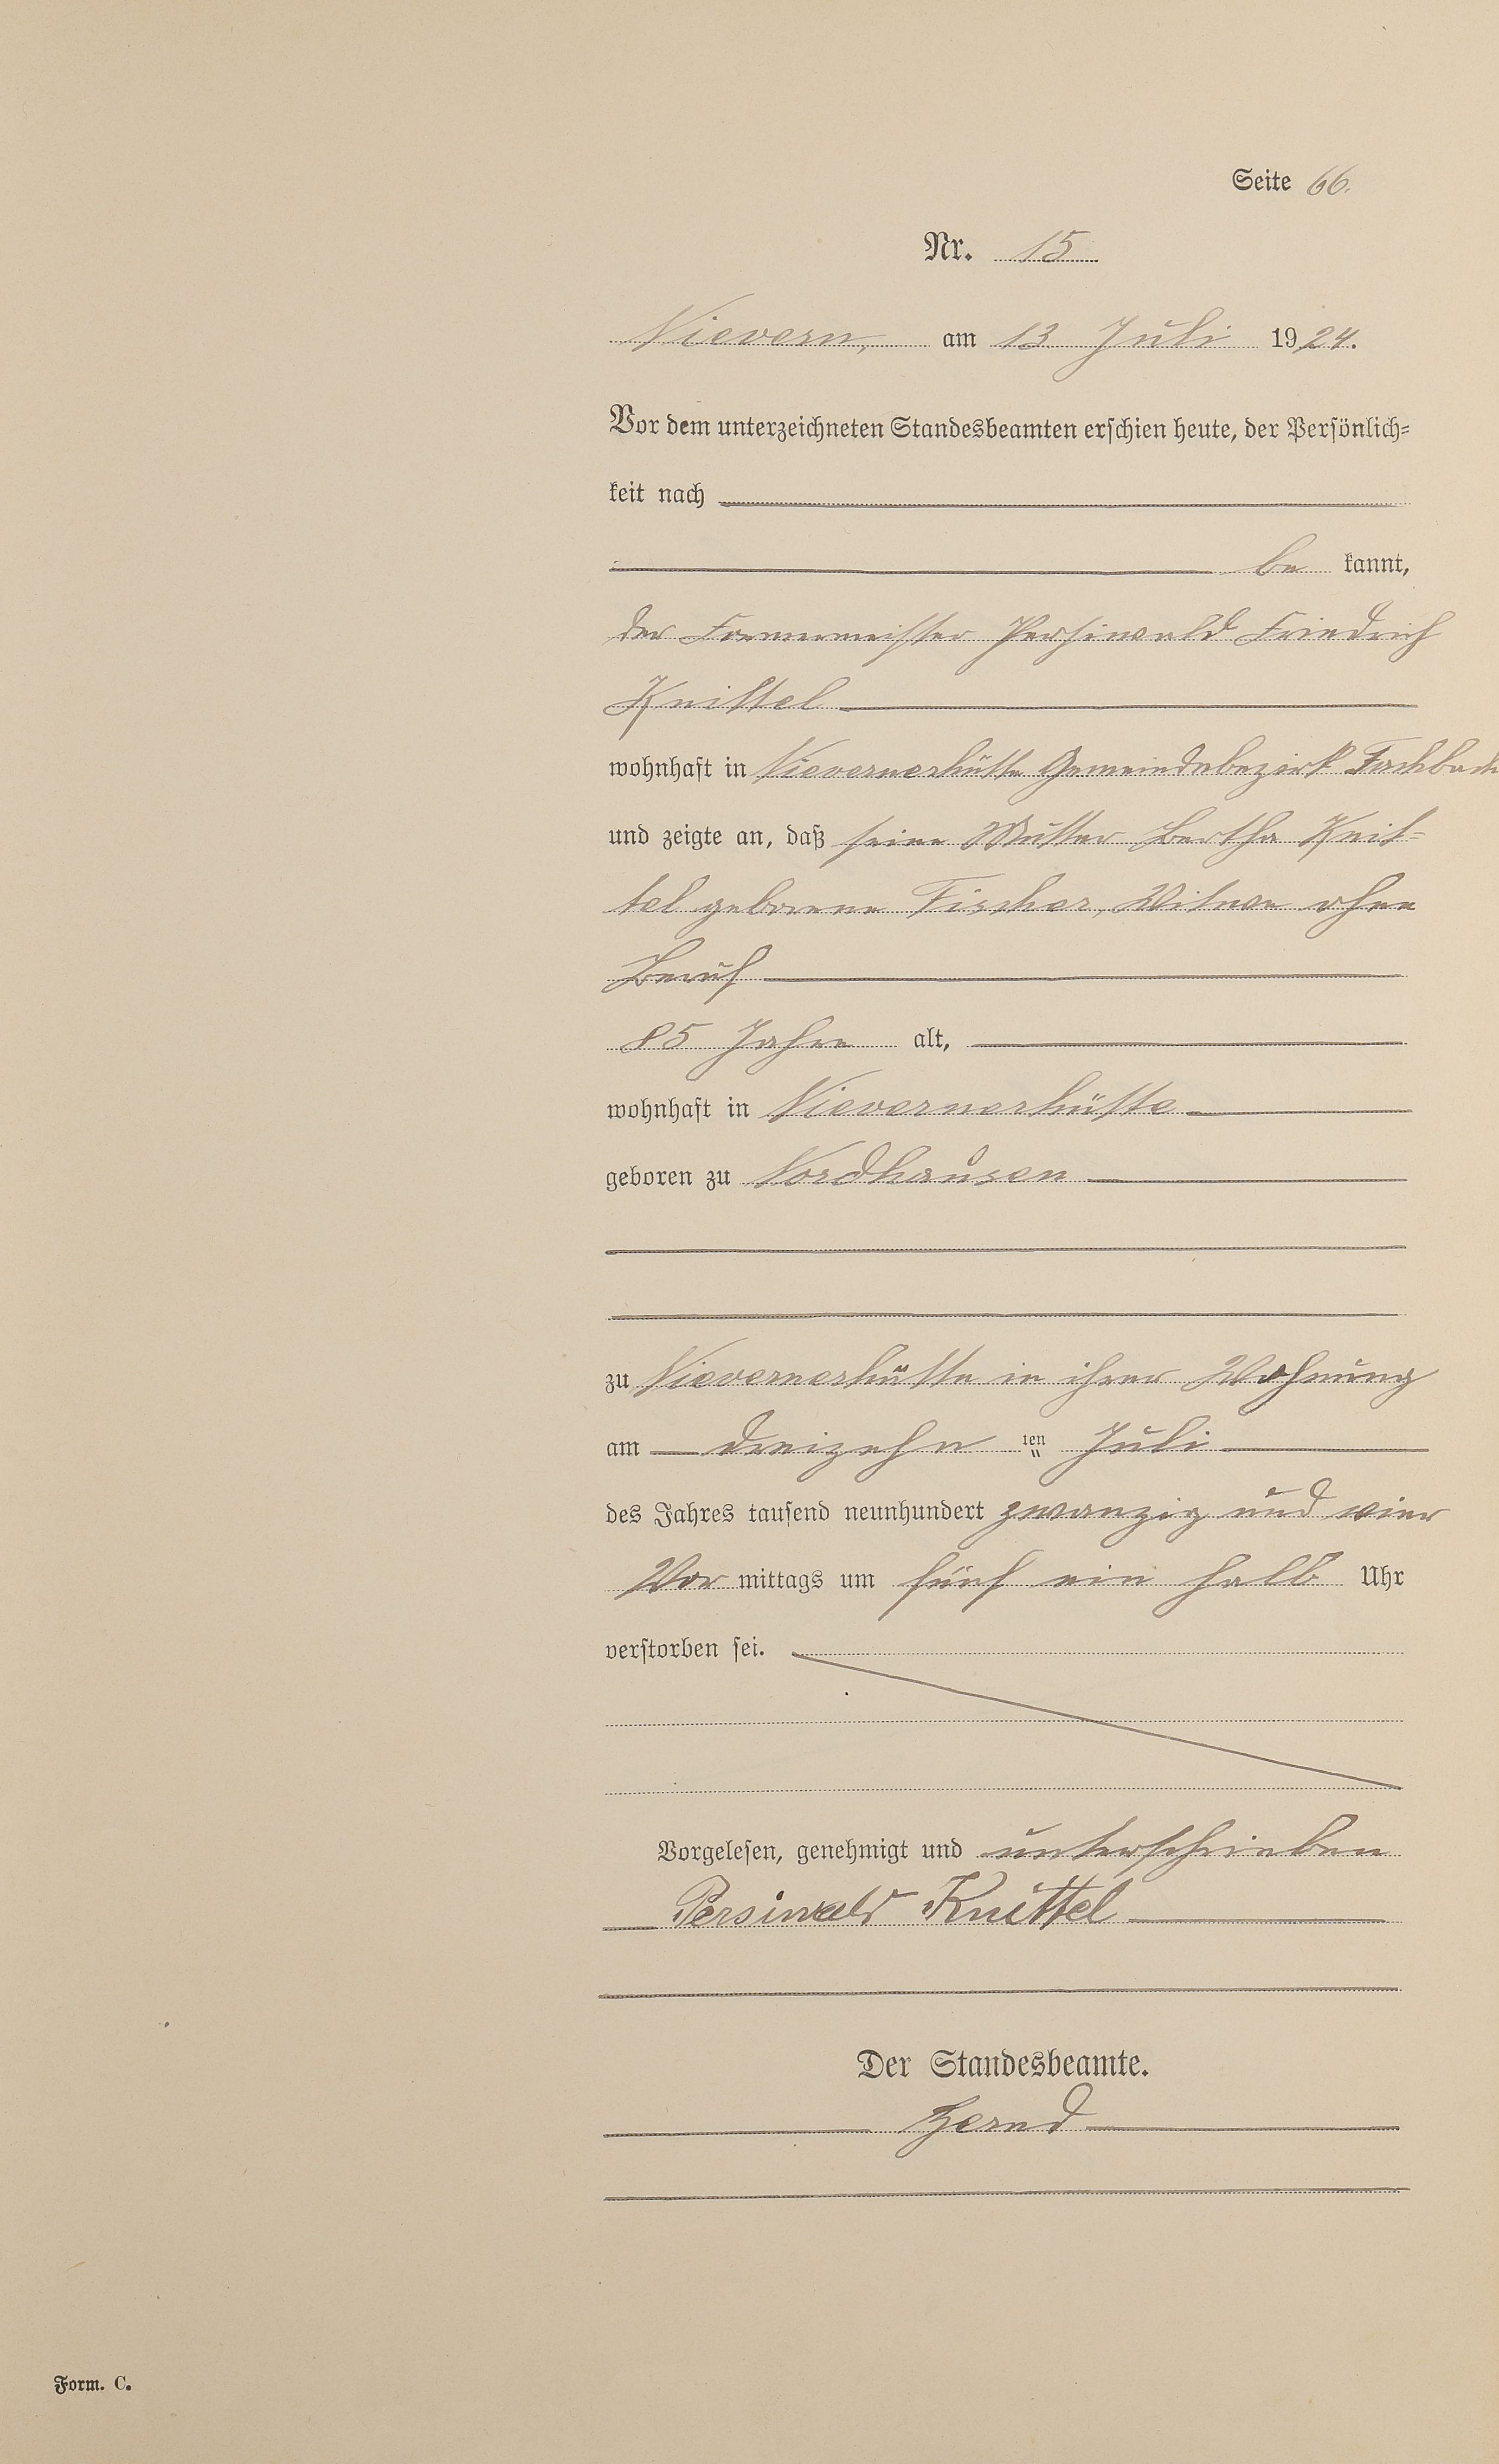 Seite 66.
Nr. 15
Nievern, am 13. Juli 1924.
Vor dem unterzeichneten Standesbeamten erschien heute, der Persönlich-
keit nach
be kannt,
der Formermeister Persiwald Friedrich
Knittel
wohnhaft in Nievernerhütte Gemeindebezirk Fachbach
und zeigte an, daß seine Mutter Bertha Knit-
tel geborene Fischer, Witwe ohne
Beruf
85 Jahre alt,
wohnhaft in Nievernerhütte
geboren zu Nordhausen
zu Nievernerhütte in ihrer Wohnung
am dreizehn ten Juli
des Jahres tausend neunhundert zwanzig und vier
Vor mittags um fünf ein halb Uhr
verstorben sei.
Vorgelesen, genehmigt und unterschrieben
Persiwald Knittel
Der Standesbeamte.
Form. C.